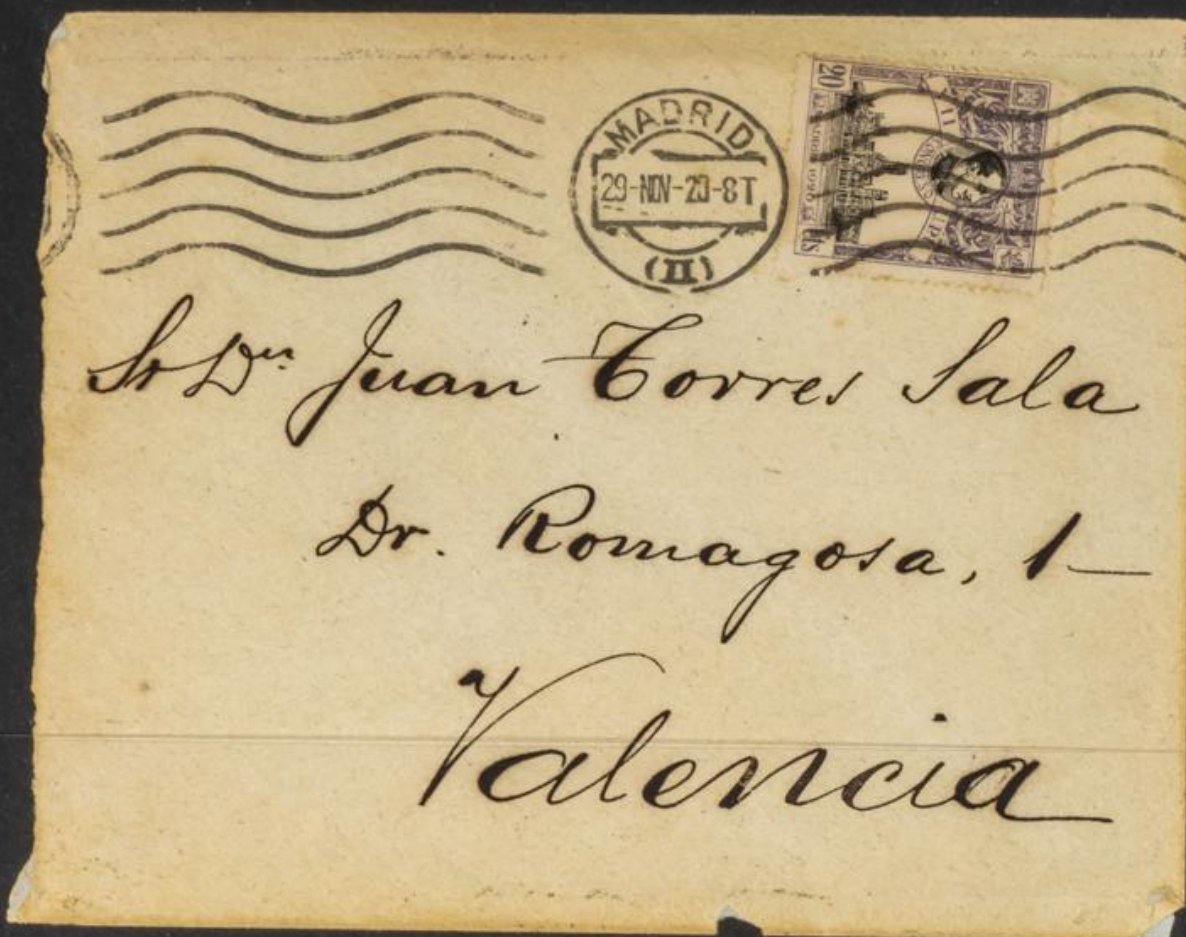 MADRID
29-NOV-20-8T
(II)
20
Sr Dn Juan Torres Sala
Dr. Romagosa, 1
Valencia